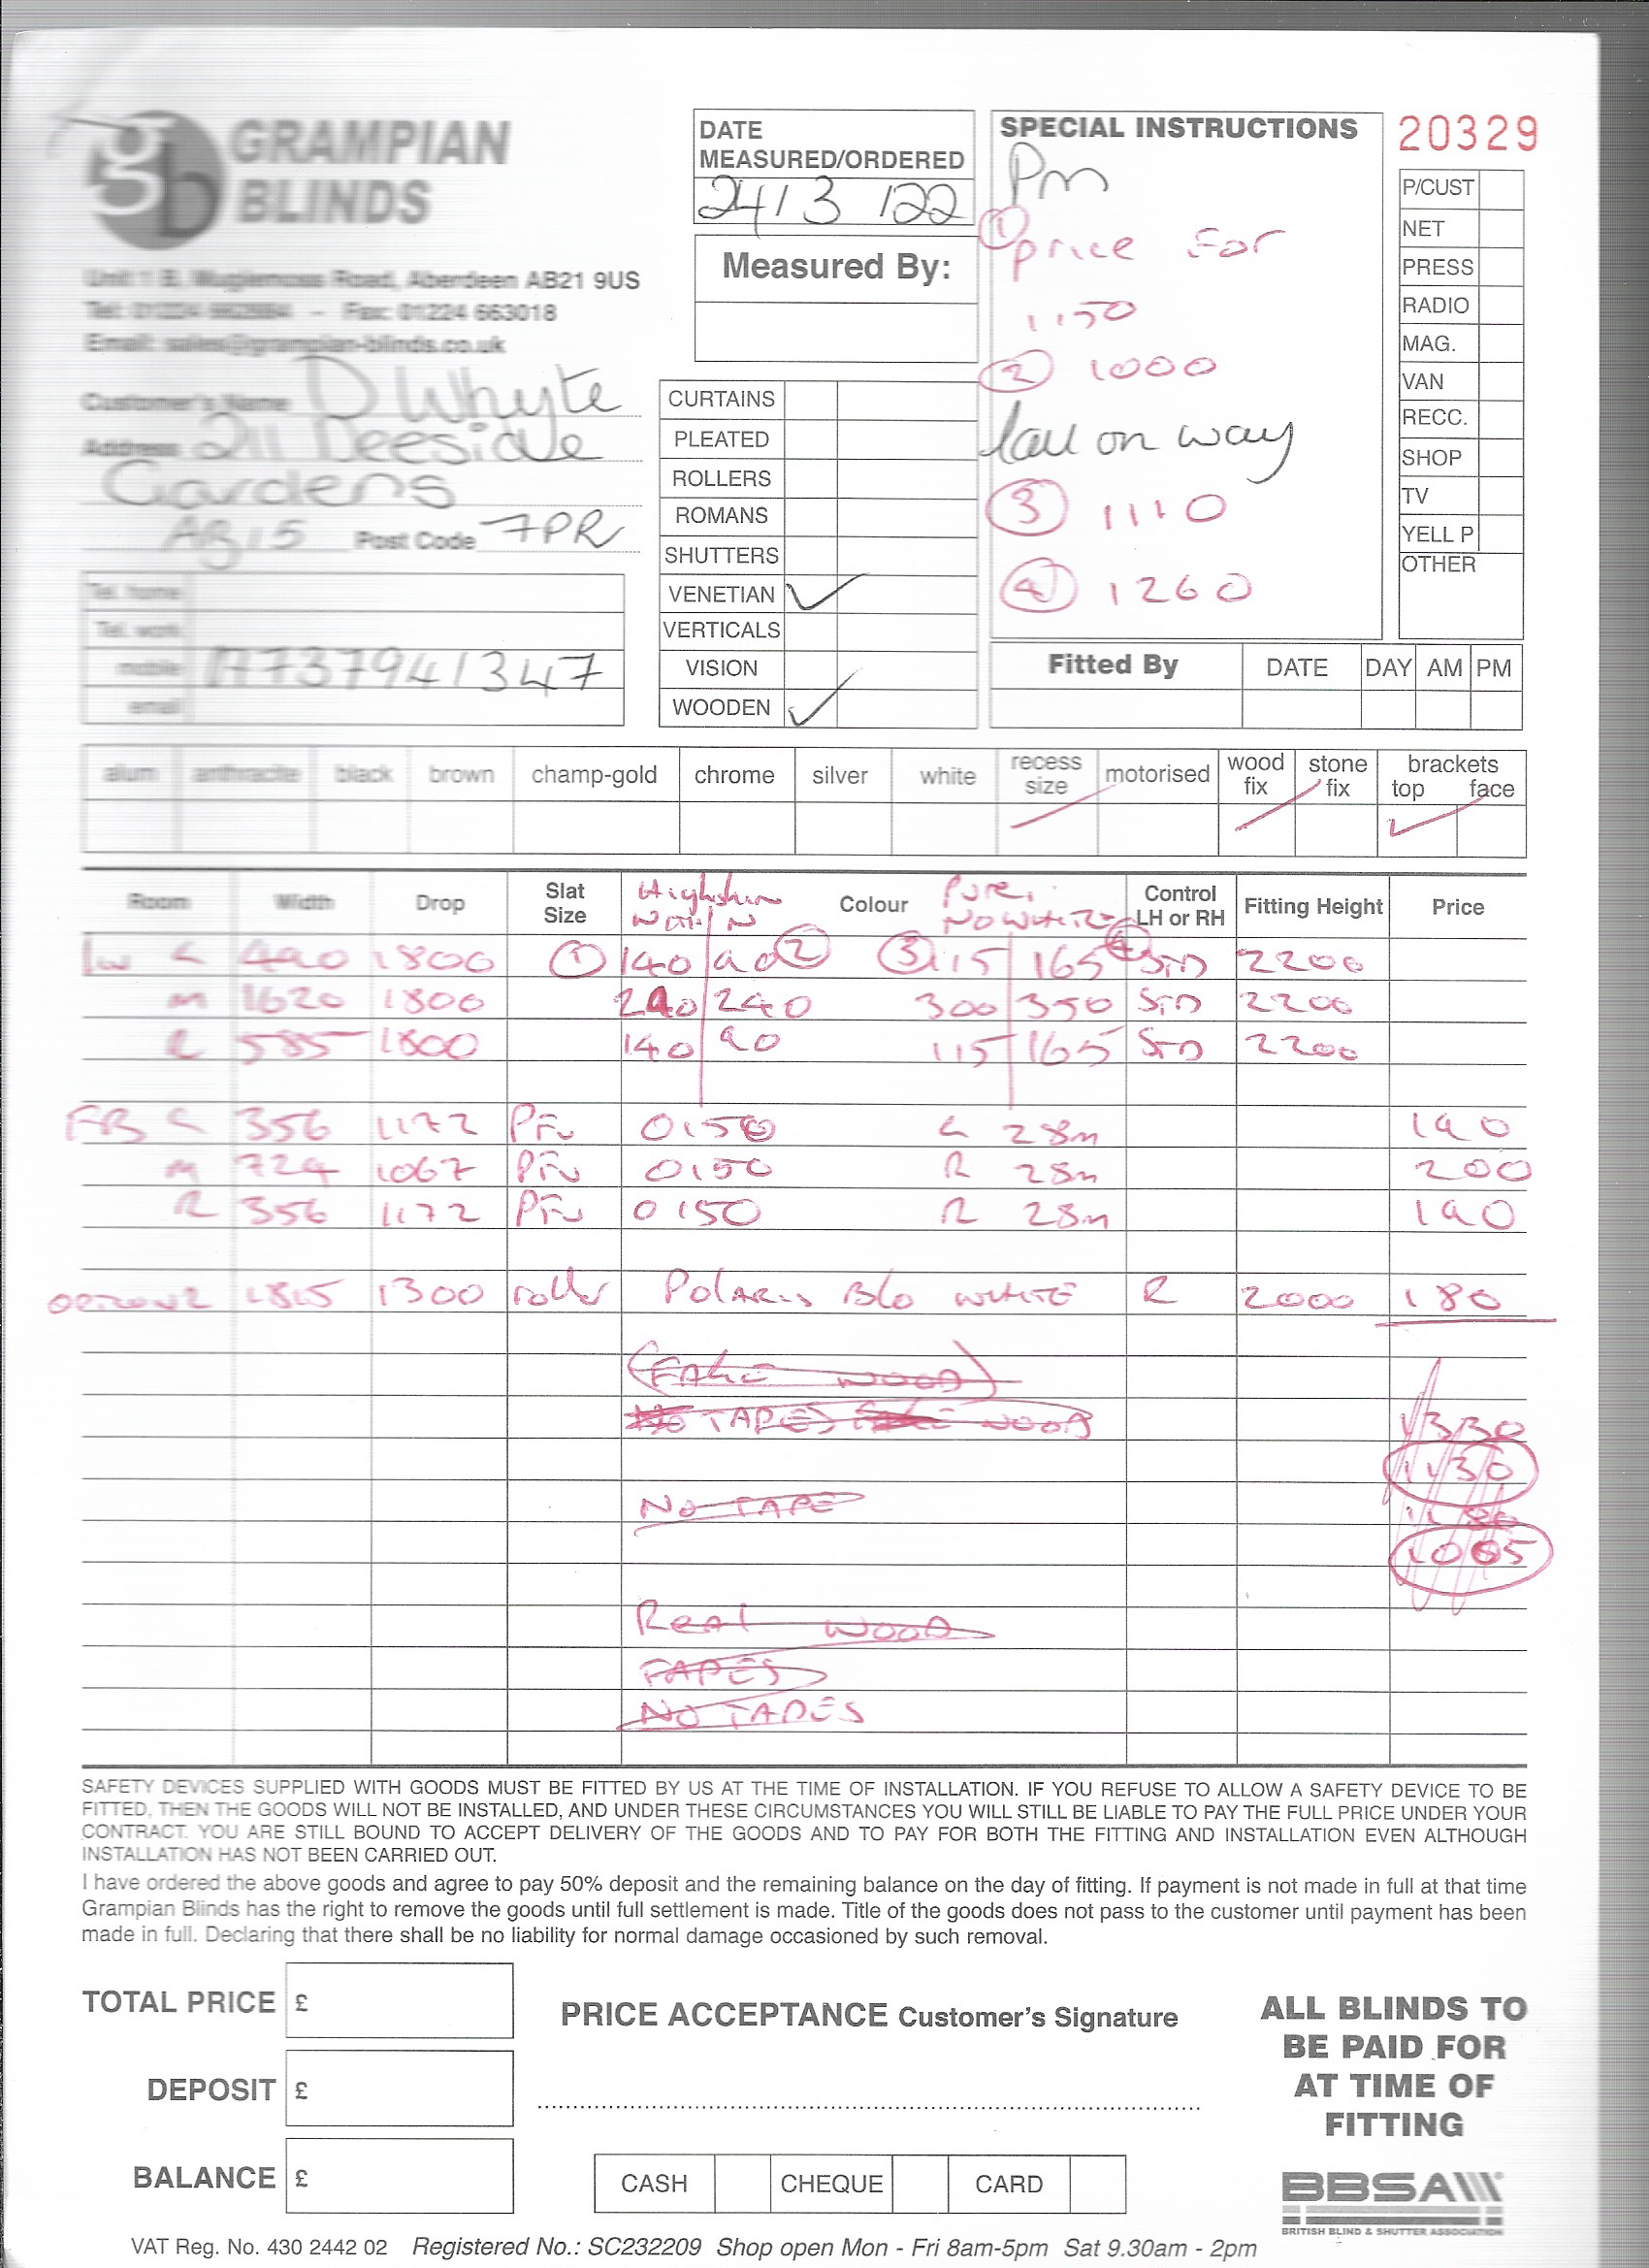 GRAMPIAN
BLINDS
Unit 1 B, Mugiemoss Road, Aberdeen AB21 9US
Fax: 01224 663018
Email: sales@grampian-blinds.co.uk
DATE
MEASURED/ORDERED
24/3/22
Measured By:
SPECIAL INSTRUCTIONS
Pm
① price for
1150
② 1000
Call on way
③ 1110
④ 1260
20329
P/CUST
NET
PRESS
RADIO
MAG.
VAN
RECC.
SHOP
TV
YELL P
OTHER
Customer's Name D Whyte
Address 211 Deeside
Gardens
AB15 Post Code 7PR
Tel. home
Tel. work
mobile 07737941347
email
CURTAINS
PLEATED
ROLLERS
ROMANS
SHUTTERS
VENETIAN ✓
VERTICALS
VISION
WOODEN ✓
Fitted By DATE DAY AM PM
alum anthracite black brown champ-gold chrome silver white recess size motorised wood fix stone fix brackets top face
Room Width Drop Slat Size Colour Control LH or RH Fitting Height Price
1800 ① 140 90 ② ③ 115 165 ④ STD 2200
M 1620 1800 240 240 300 350 STD 2200
R 585 1800 140 90 115 165 STD 2200
356 1172 0150 L 28m 190
M 724 1067 0150 R 28m 200
R 356 1172 0150 R 28m 190
1815 1300 roller Polaris B/o WHITE R 2000 180
(FAKE WOOD)
NO TAPES WOOD
1330
1130
NO TAPE
Real WOOD
TAPES
NO TAPES
SAFETY DEVICES SUPPLIED WITH GOODS MUST BE FITTED BY US AT THE TIME OF INSTALLATION. IF YOU REFUSE TO ALLOW A SAFETY DEVICE TO BE
FITTED, THEN THE GOODS WILL NOT BE INSTALLED, AND UNDER THESE CIRCUMSTANCES YOU WILL STILL BE LIABLE TO PAY THE FULL PRICE UNDER YOUR
CONTRACT. YOU ARE STILL BOUND TO ACCEPT DELIVERY OF THE GOODS AND TO PAY FOR BOTH THE FITTING AND INSTALLATION EVEN ALTHOUGH
INSTALLATION HAS NOT BEEN CARRIED OUT.
I have ordered the above goods and agree to pay 50% deposit and the remaining balance on the day of fitting. If payment is not made in full at that time
Grampian Blinds has the right to remove the goods until full settlement is made. Title of the goods does not pass to the customer until payment has been
made in full. Declaring that there shall be no liability for normal damage occasioned by such removal.
TOTAL PRICE £
DEPOSIT £
BALANCE £
PRICE ACCEPTANCE Customer's Signature
CASH CHEQUE CARD
ALL BLINDS TO
BE PAID FOR
AT TIME OF
FITTING
BBSA
BRITISH BLIND & SHUTTER ASSOCIATION
VAT Reg. No. 430 2442 02 Registered No.: SC232209 Shop open Mon - Fri 8am-5pm Sat 9.30am - 2pm